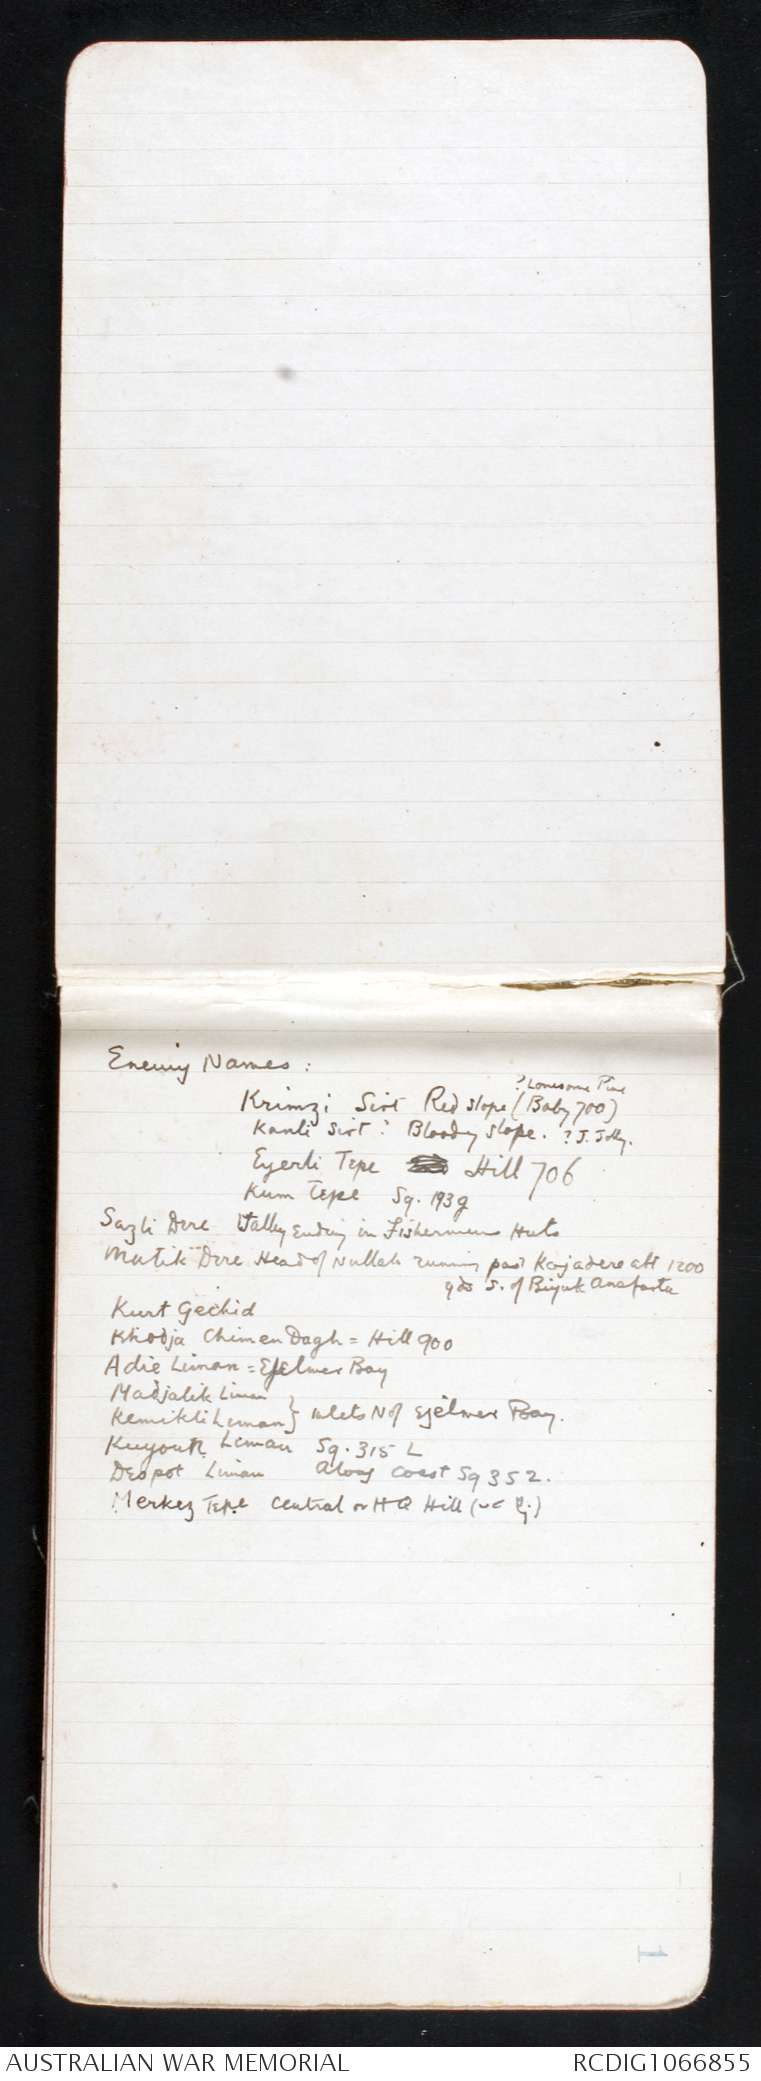 Enemy Names:
? Lonesome Pine
Krimzi Sirt Red slope (Baby 700)
Kanli Sirt? Bloody slope. ? J. Jolly.
Eyerli Tepe Hill 706
Kum Tepe Sq. 193g
Sazli Dere Valley Ending in Fishermens Huts
Mutik Dere Head of Nullah running past Kojadere abt 1200
yds S. of Biyuk Anafarta
Kurt Gechid
Khodja Chimen Dagh = Hill 900
Adie Liman = Ejelmer Bay
Madjalik Liman
Kemikli Leman } Inlets N of Ejelmer Bay.
Kuyouk Leman Sq. 315 L
Despot Liman Along coast Sq 352.
Merkez Tepe Central or HQ Hill
AUSTRALIAN WAR MEMORIAL
RCDIG1066855